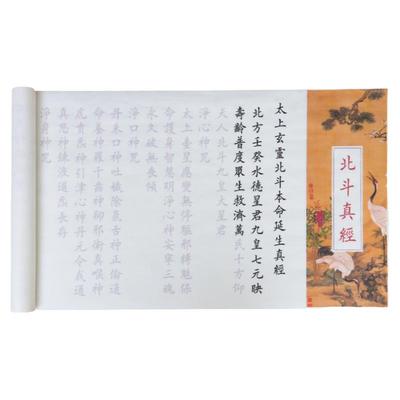 北斗真經
太上玄靈北斗本命延生真經
北方壬癸水德星君九皇七元映
壽齡普度眾生救濟萬民十方仰
天人北斗九皇大星君
淨心神咒
太上台星應變無停驅邪縛魅保
命護身智慧明淨心神安寧三魂
永久魄無喪傾
淨口神咒
丹朱口神吐穢除氛舌神正倫通
命養神羅千齒神卻邪衛真喉神
虎賁炁神引津心神丹元令我通
真思神鍊液道炁長存
淨身神咒